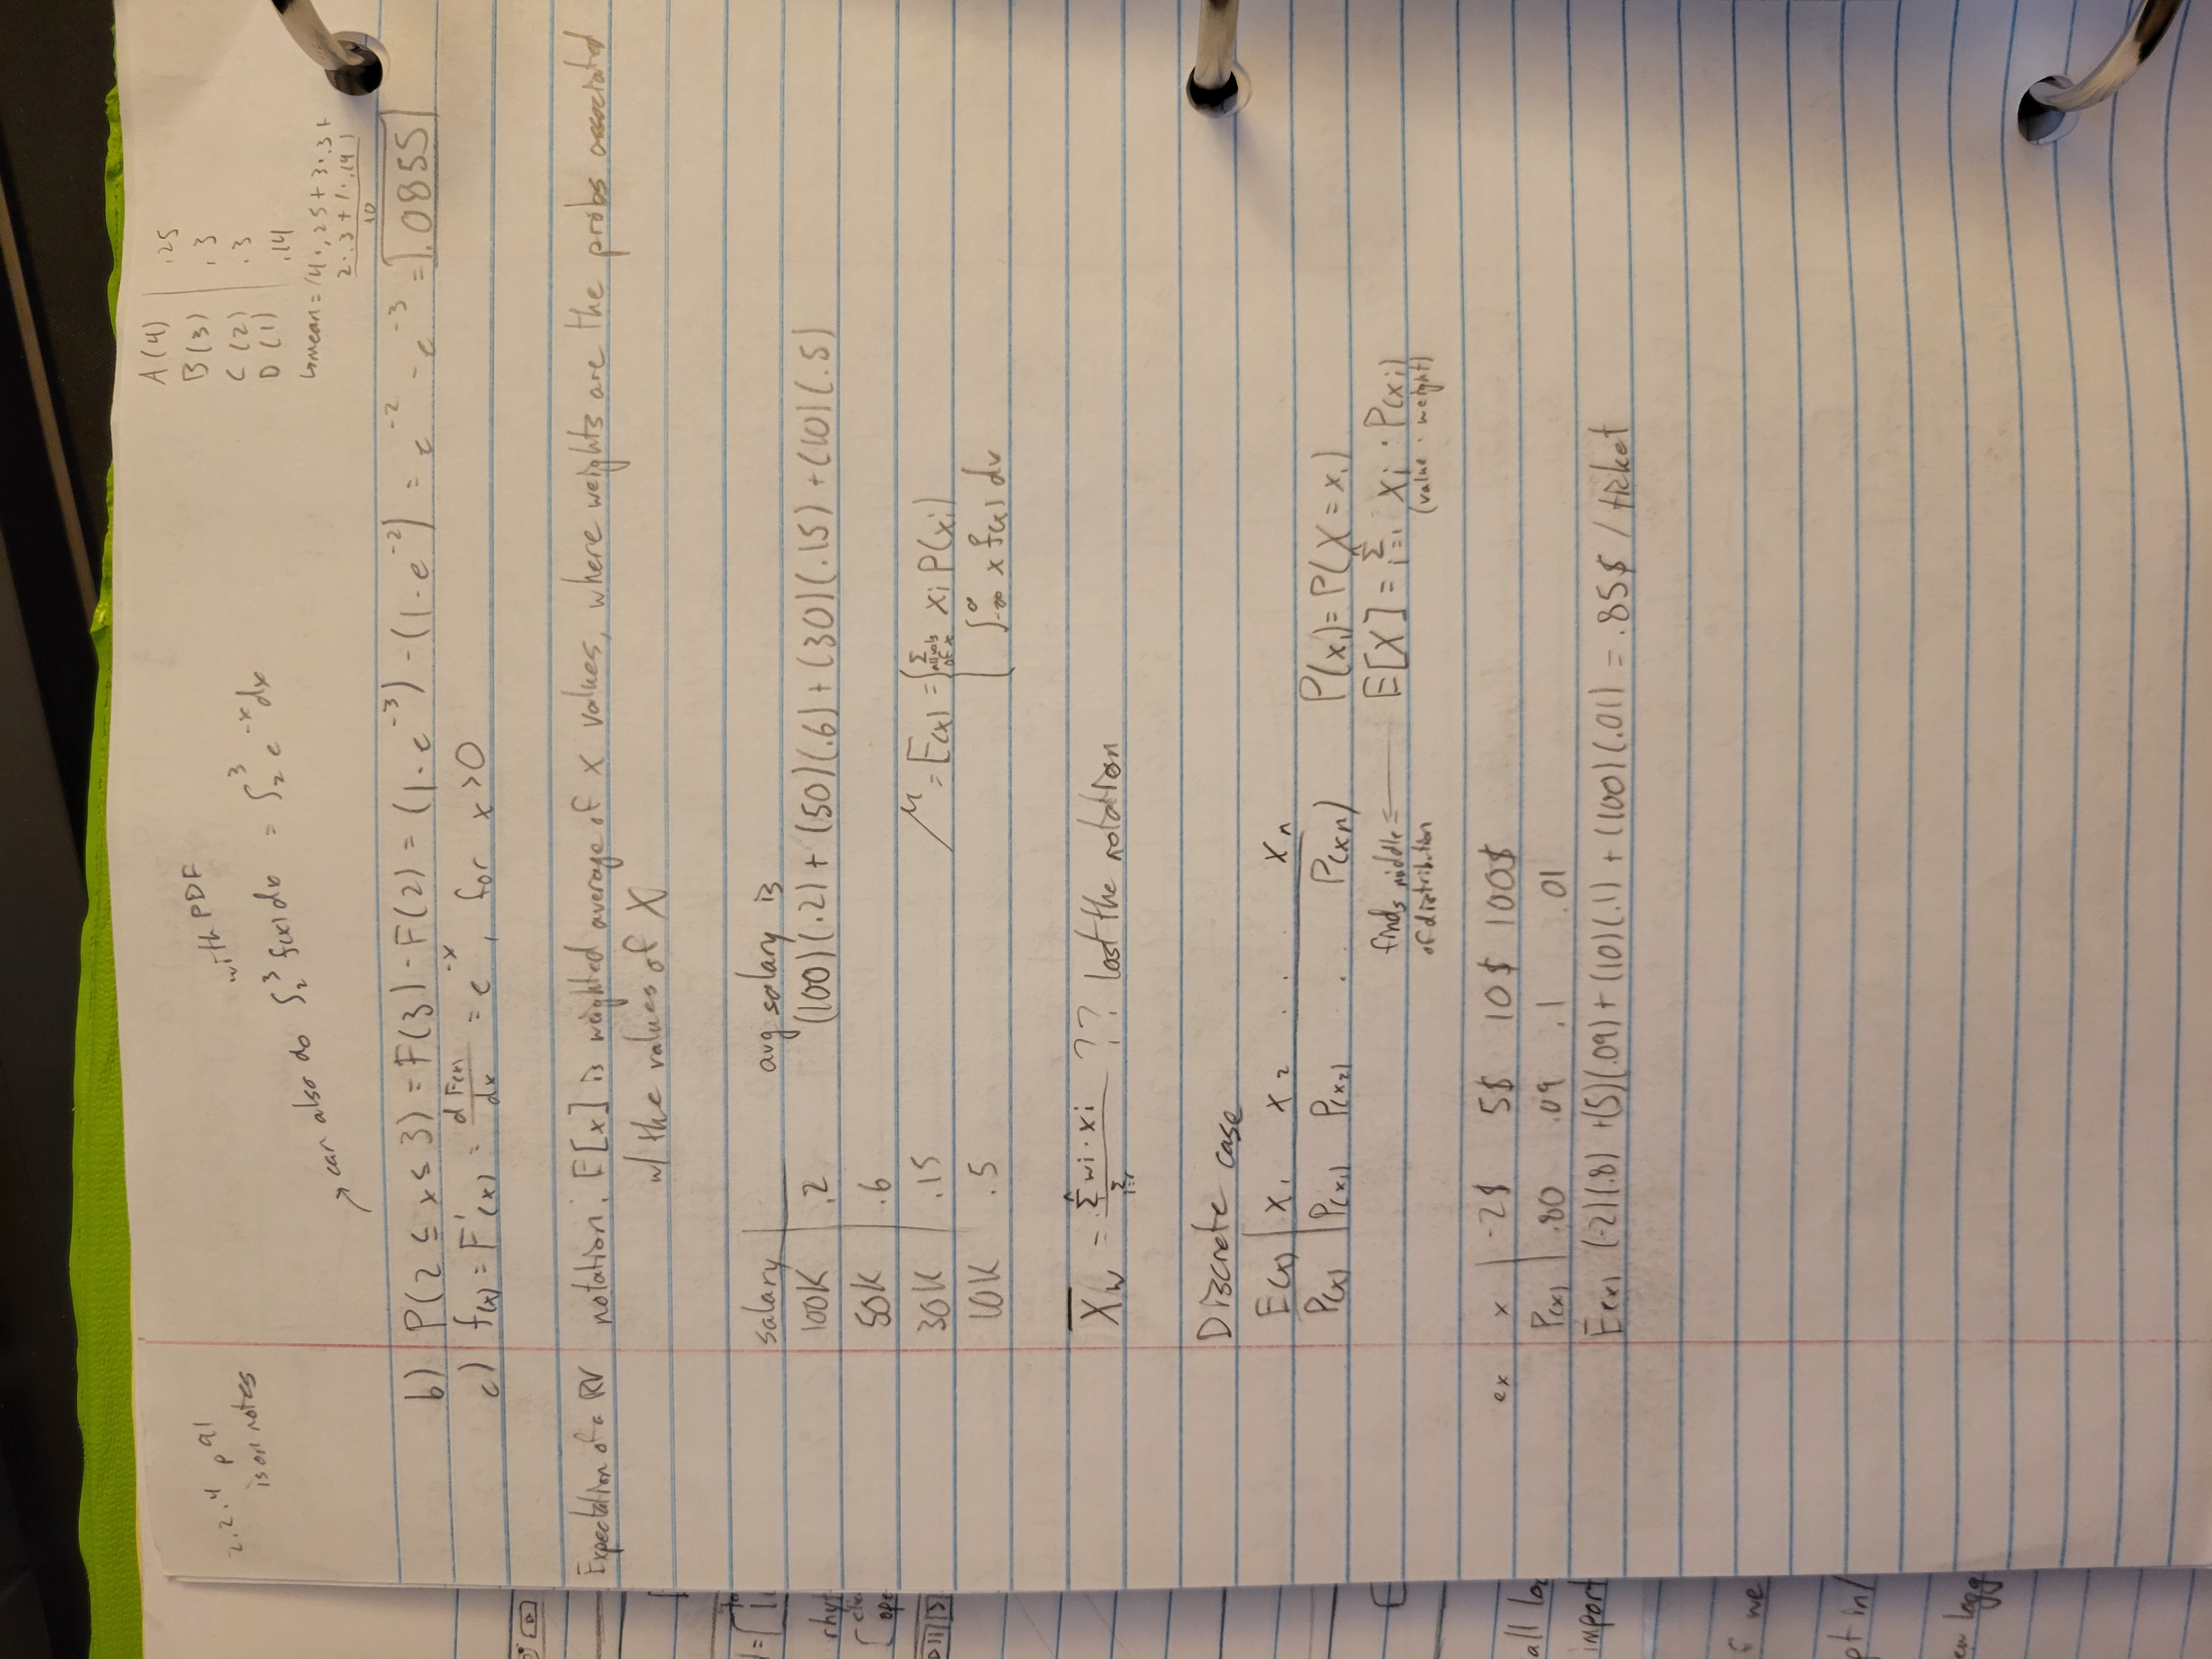 2.2.4 p91
is on notes
with PDF
→ can also do ∫₂³ f(x) dx = ∫₂³ e^-x dx
A (4) | .25
B (3) | .3
C (2) | .3
D (1) | .14
↳ mean = (4·.25 + 3·.3 +
2·.3 + 1·.14)
10
b) P(2 ≤ x ≤ 3) = F(3) - F(2) = (1 - e^-3) - (1 - e^-2) = e^-2 - e^-3 = .0855
c) f(x) = F'(x) = dF(x)/dx = e^-x, for x > 0
Expectation of a RV notation: E[x] is weighted average of x values, where weights are the probs associated
w/ the values of X
salary | avg salary is
100K | .2 (100)(.2) + (50)(.6) + (30)(.15) + (10)(.5)
50K | .6
30K | .15 μ = E(x) = { Σ all vals of x xi P(xi)
10K | .5 ∫-∞^∞ x f(x) dx
X̄w = Σ^n wi · xi / Σ i=1 ?? lost the notation
Discrete case
E(x) | x1 x2 . . xn
P(x) | P(x1) P(x2) . P(xn) P(x1) = P(X = x1)
finds middle ⇐ E[X] = Σ i=1^n xi · P(xi)
of distribution (value · weight)
ex x | -2$ 5$ 10$ 100$
P(x) | .80 .09 .1 .01
E(x) (-2)(.8) + (5)(.09) + (10)(.1) + (100)(.01) = .85$ / ticket
rhyt
ope
all loc
import
we
pt in/
logg